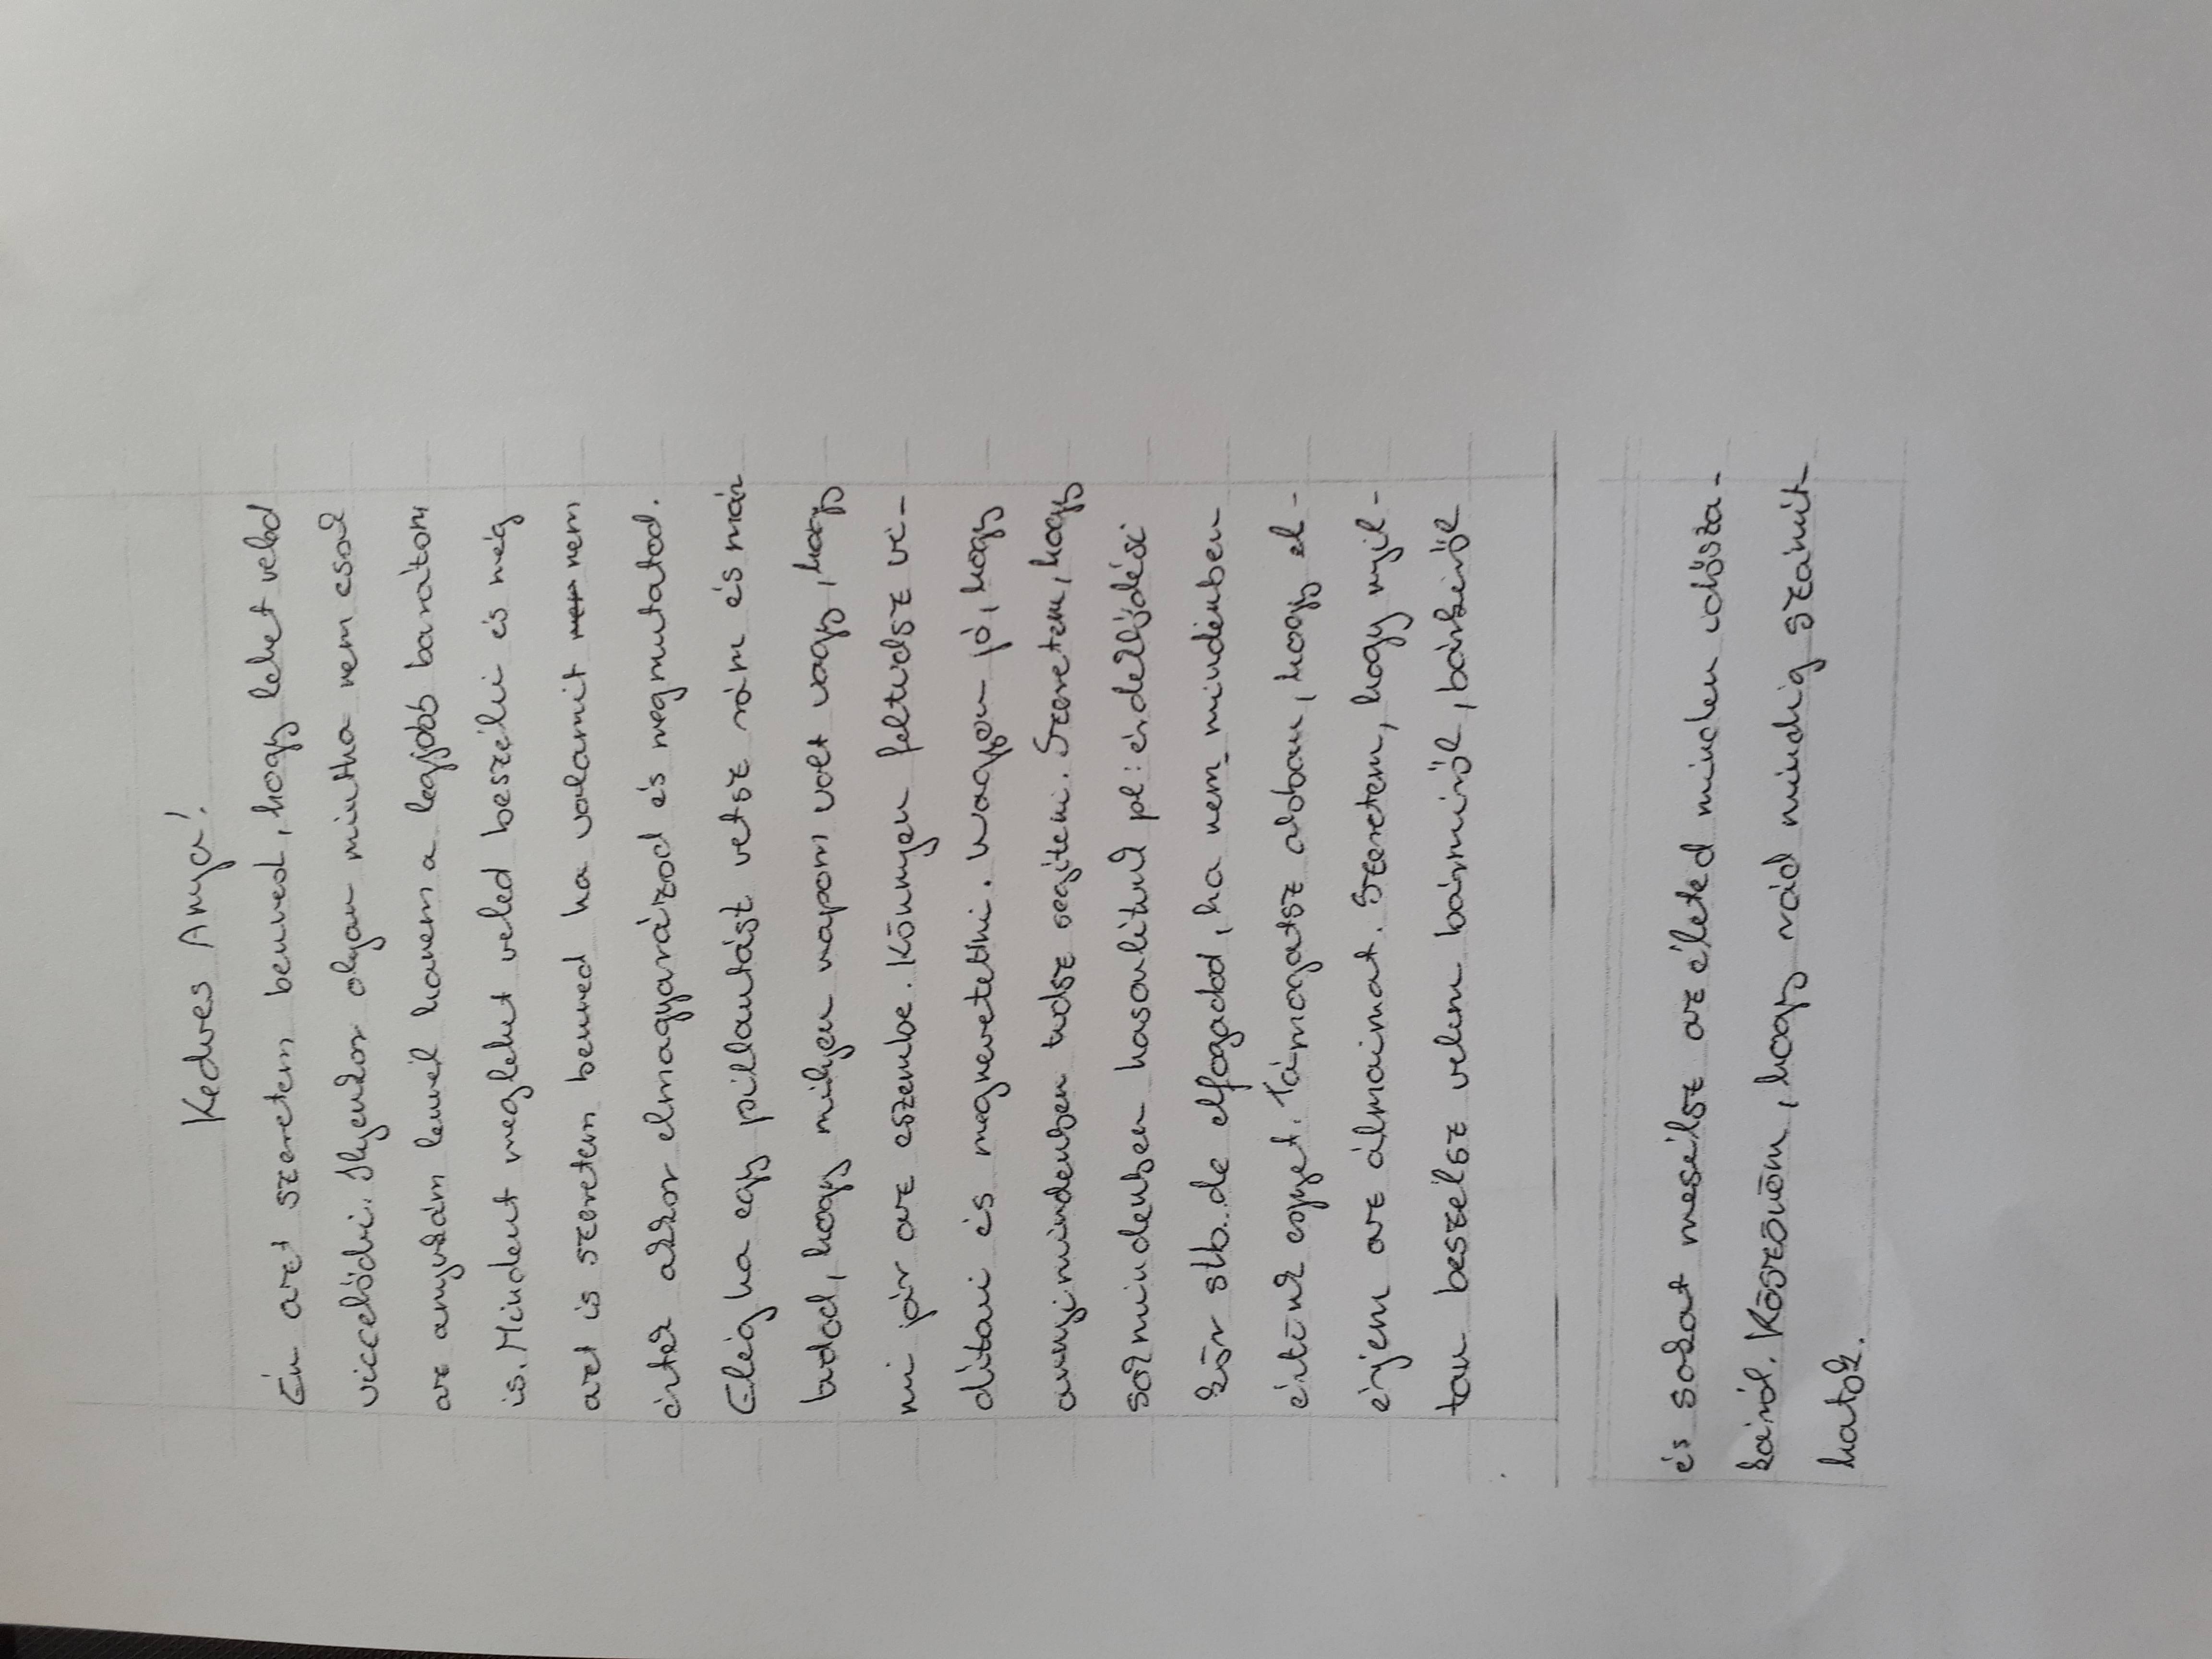 Kedves Anya!
Én azt szeretem benned, hogy lehet veled
viccelődni. Ilyenkor olyan mintha nem csak
az anyukám lennél hanem a legjobb barátom
is. Mindent meglehet veled beszélni és még
azt is szeretem benned ha valamit nem nem
értek akkor elmagyarázod és megmutatod.
Elég ha egy pillantást vetsz rám és már
tudod, hogy milyen napom volt vagy, hogy
mi jár az eszembe. Könnyen feltudsz vi-
dítani és megnevetetni. Nagyon jó, hogy
annyi mindenben tudsz segíteni. Szeretem, hogy
sok mindenben hasonlítunk pl: érdeklődési
kör stb. de elfogadod, ha nem mindenben
értünk egyet. Támogatsz abban, hogy el-
érjem az álmaimat. Szeretem, hogy nyíl-
tan beszélsz velem bármiről, bárkiről
és sokat mesélsz az életed minden idősza-
káról. Köszönöm, hogy rád mindig számít-
hatok.